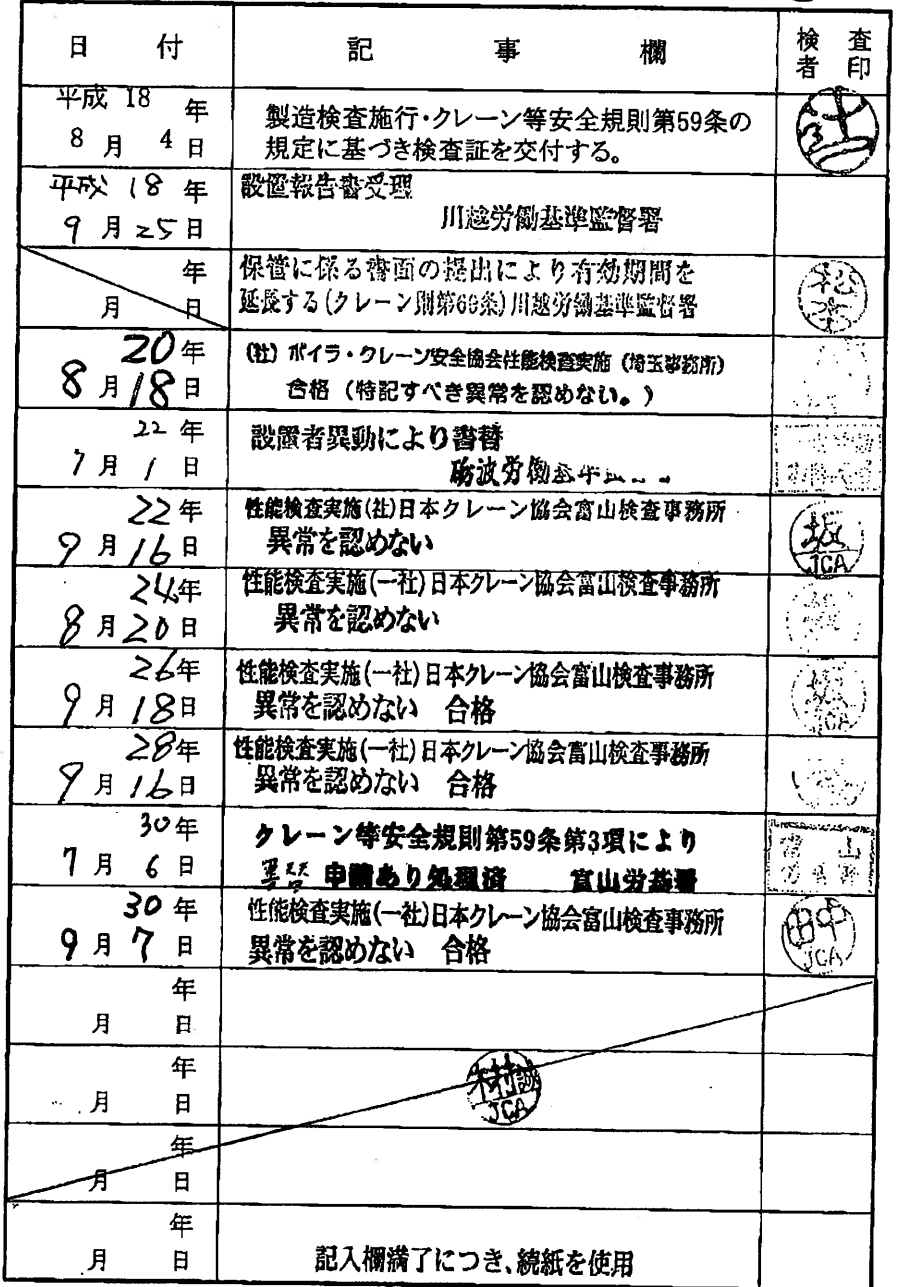 日 付 記 事 欄 検査者印
平成 18 年
8 月 4 日
製造検査施行・クレーン等安全規則第59条の
規定に基づき検査証を交付する。
平成 18 年
9 月 25 日
設置報告書受理
川越労働基準監督署
年
月 日
保管に係る書面の提出により有効期間を
延長する(クレーン則第60条)川越労働基準監督署
20 年
8 月 18 日
(社) ボイラ・クレーン安全協会性能検査実施 (埼玉事務所)
合格 (特記すべき異常を認めない。)
22 年
7 月 1 日
設置者異動により書替
砺波労働基準
22 年
9 月 16 日
性能検査実施(社)日本クレーン協会富山検査事務所
異常を認めない
坂
JCA
24 年
8 月 20 日
性能検査実施(一社)日本クレーン協会富山検査事務所
異常を認めない
26 年
9 月 18 日
性能検査実施(一社)日本クレーン協会富山検査事務所
異常を認めない 合格
JCA
28 年
9 月 16 日
性能検査実施(一社)日本クレーン協会富山検査事務所
異常を認めない 合格
30 年
7 月 6 日
クレーン等安全規則第59条第3項により
書替 申請あり処理済 富山労基署
富山
30 年
9 月 7 日
性能検査実施(一社)日本クレーン協会富山検査事務所
異常を認めない 合格
田中
JCA
年
月 日
年
月 日
村誠
JCA
年
月 日
年
月 日
記入欄満了につき、続紙を使用